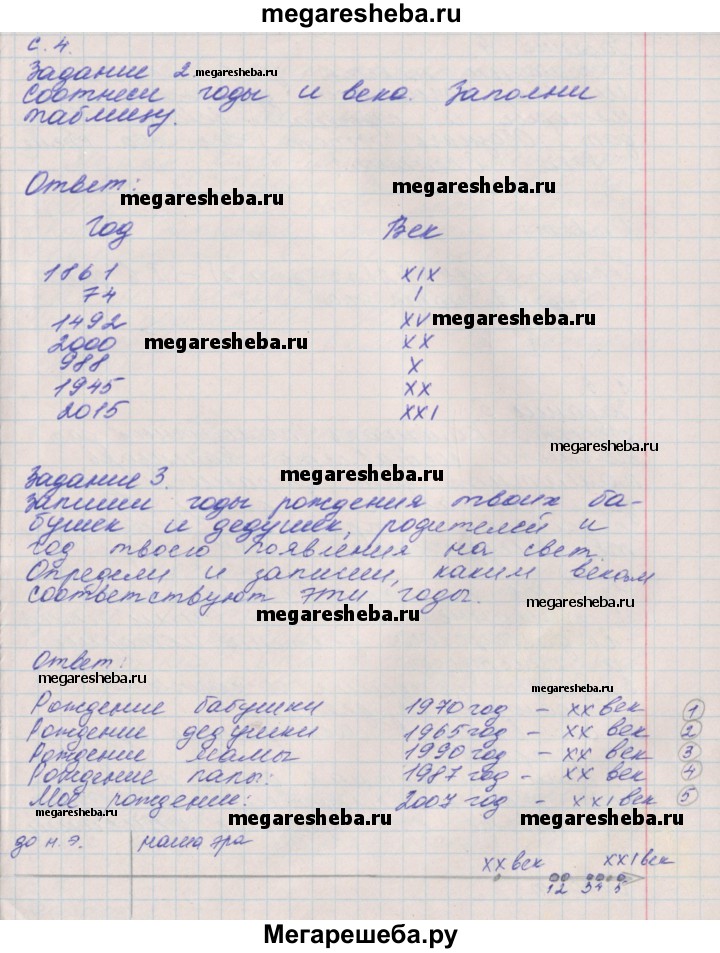 megaresheba.ru
с. 4.
Задание 2 megaresheba.ru
Соотнеси годы и века. Заполни
таблицу.
Ответ: megaresheba.ru megaresheba.ru
Год Век
1861 XIX
74 I
1492 XV megaresheba.ru
2000 megaresheba.ru XX
988 X
1945 XX
2015 XXI
megaresheba.ru
Задание 3. megaresheba.ru
Запиши годы рождения твоих ба-
бушек и дедушек, родителей и
год твоего появления на свет.
Определи и запиши, каким векам
соответствуют эти годы. megaresheba.ru
megaresheba.ru
Ответ:
megaresheba.ru megaresheba.ru
Рождение бабушки 1970 год – XX век 1
Рождение дедушки 1965 год – XX век 2
Рождение мамы 1990 год – XX век 3
Рождение папы: 1987 год – XX век 4
Моё рождение: 2007 год – XXI век 5
megaresheba.ru megaresheba.ru megaresheba.ru
до н.э. наша эра
XX век XXI век
1 2 3 4 5
Мегарешеба.ру